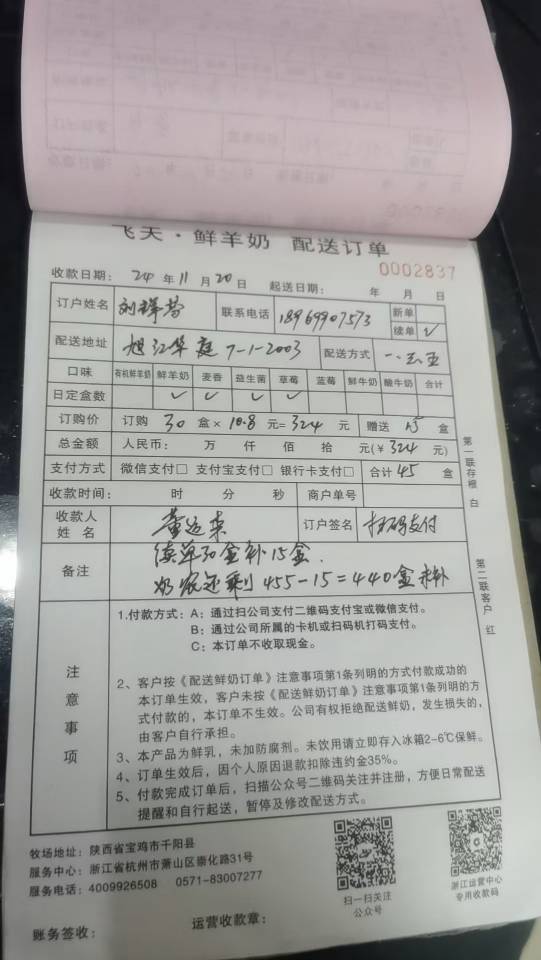 飞天·鲜羊奶 配送订单
0002837
收款日期： 24 年 11 月 20 日 起送日期： 年 月 日
订户姓名 联系电话 18969907573 新单
续单 ✓
配送地址 旭江华庭 7-1-2003 配送方式 一、三、五
口味 有机鲜羊奶 鲜羊奶 麦香 益生菌 草莓 蓝莓 鲜牛奶 酸牛奶 合计
日定盒数 ✓ ✓ ✓ ✓
订购价 订购 30 盒× 10.8 元= 324 元 赠送 15 盒
总金额 人民币： 万 仟 佰 拾 元(￥ 324 元)
支付方式 微信支付□ 支付宝支付□ 银行卡支付□ 合计 45 盒
收款时间： 时 分 秒 商户单号
收款人姓名 订户签名 扫码支付
备注 续单30盒补15盒.
还剩 455-15=440盒未补
注意事项
1.付款方式：A：通过扫公司支付二维码支付宝或微信支付。
B：通过公司所属的卡机或扫码机打码支付。
C：本订单不收取现金。
2、客户按《配送鲜奶订单》注意事项第1条列明的方式付款成功的
本订单生效，客户未按《配送鲜奶订单》注意事项第1条列明的方
式付款的，本订单不生效。公司有权拒绝配送鲜奶，发生损失的，
由客户自行承担。
3、本产品为鲜乳，未加防腐剂。未饮用请立即存入冰箱2-6℃保鲜。
4、订单生效后，因个人原因退款扣除违约金35%。
5、付款完成订单后，扫描公众号二维码关注并注册，方便日常配送
提醒和自行起送，暂停及修改配送方式。
第一联存根 白
第二联客户 红
牧场地址：陕西省宝鸡市千阳县
服务中心：浙江省杭州市萧山区崇化路31号
服务电话：4009926508 0571-83007277
扫一扫关注
公众号
浙江运营中心
专用收款码
账务签收： 运营收款章：